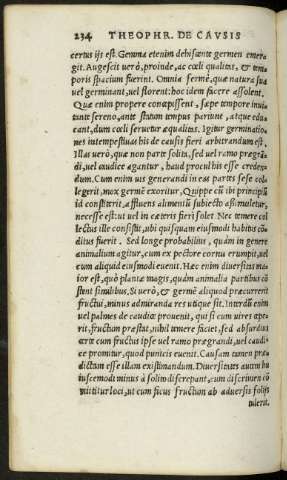 234 THEOPHR. DE CAVSIS
certus ijs est. Gemma etenim dehiscente germen emer
git. Augescit verò, proinde, ac cœli qualitas, & tem
poris spacium fuerint. Omnia fermè, quæ natura sua
vel germinant, vel florent: hoc idem facere assolent.
Quæ enim propere concepissent, sæpe tempore inui
tante sereno, ante statum tempus pariunt, atque edu
cant, dum cœli seruetur æqualitas. Igitur germinatio
nes intempestiuas his de causis fieri arbitrandum est.
Illas verò, quæ non parte solita, sed vel ramo prægrã
di, vel caudice agantur, haud procul his esse creden
dum. Cum enim uis generandi in eas partes sese col
legerit, mox germẽ exoritur, Quippe cũ ibi principiũ
id constiterit, affluens alimentũ subiecto assimuletur,
necesse est: ut vel in cæteris fieri solet. Nec temere col
lectus ille consistit, ubi quisquam eiusmodi habitus cõ
ditus fuerit. Sed longe probabilius, quàm in genere
animalium agitur, cum ex pectore cornu erumpit, vel
cum aliquid eiusmodi euenit. Hæc enim diuersitas ma
ior est, quò plantæ magis, quàm animalia partibus cõ
stent similibus. Si verò, & germẽ aliquod præcurrent
fructui, minus admiranda res utique sit. Interdũ enim
vel palmes de caudice prouenit, qui si cum uires cepe
rit, fructum præstat, nihil temere faciet, sed absurdius
certe cum fructus ipse vel ramo prægrandi, vel caudi
ce promitur, quod punicis euenit. Causam tamen præ
dictam esse illam existimandum. Diuersitates autem hu
iuscemodi minus à solitis discrepant, cum discrimen cõ
mittitur loci, ut cum ficus fructum ab aduersis folijs
tulerit.